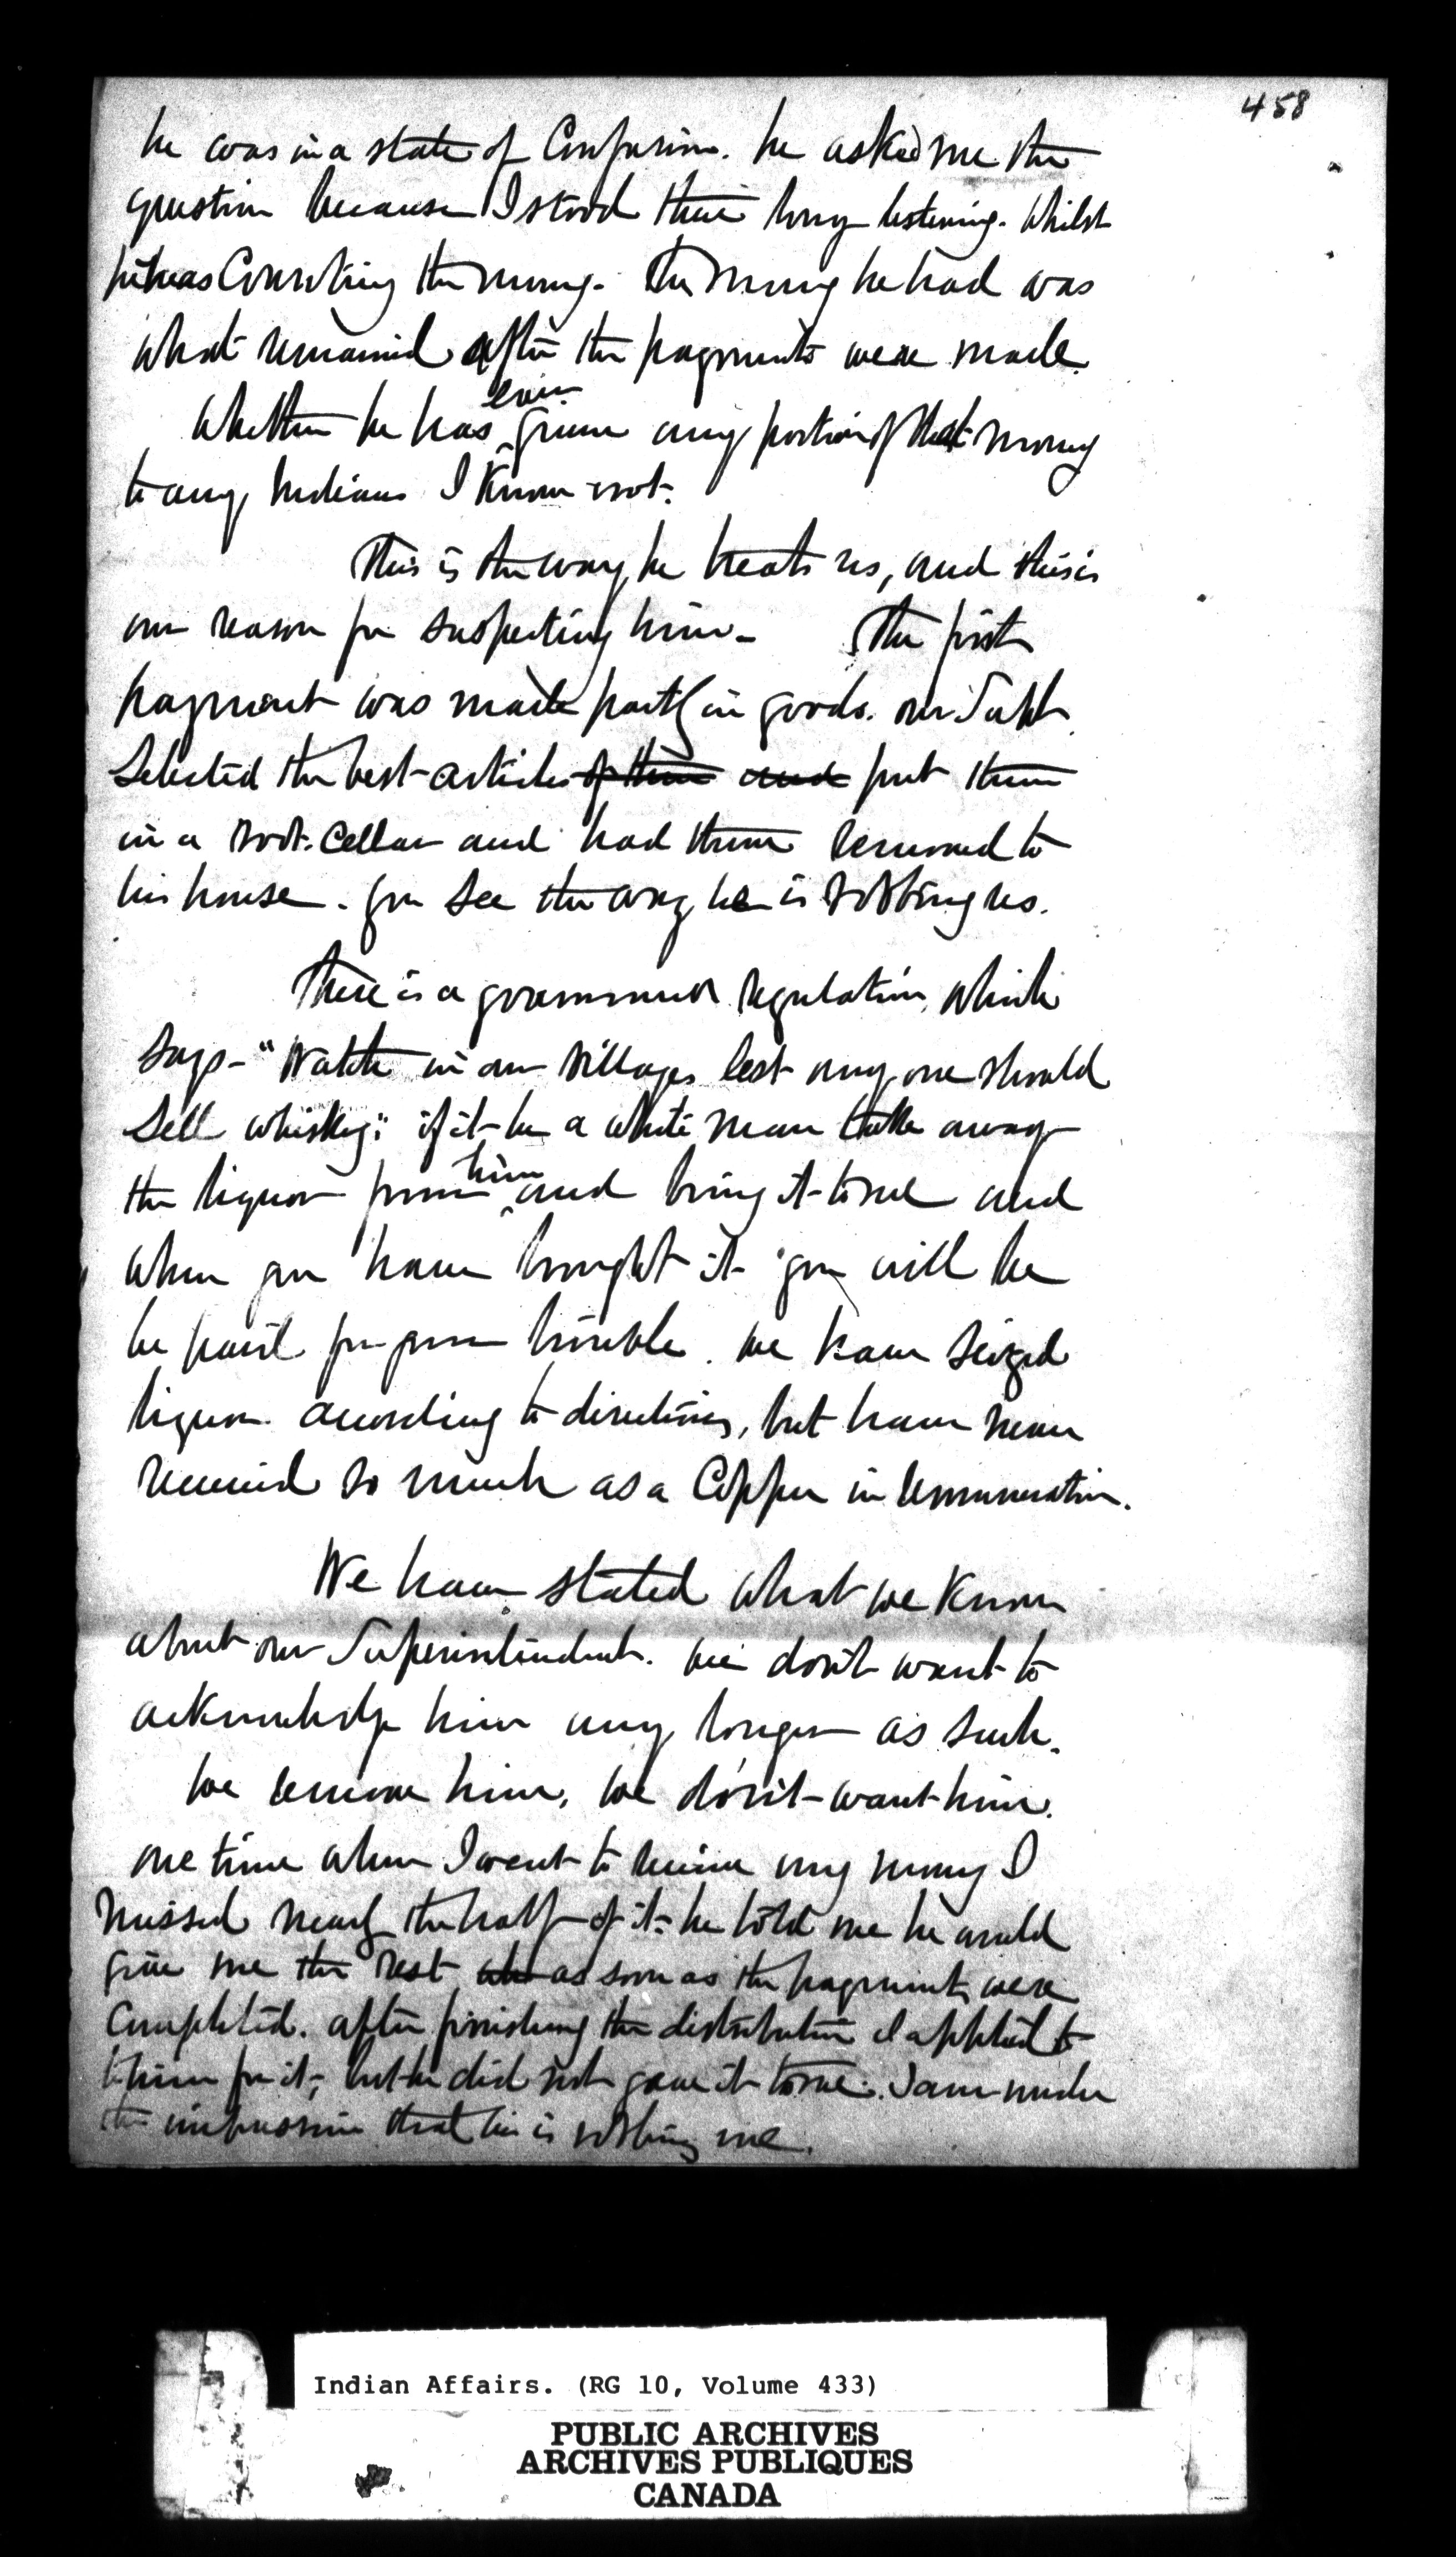 458
he was in a state of Confusion. he asked me the
question because I stood there long listening. Whilst
he was Counting the money. The money he had was
what remained after the payments were made.
ever
Whether he has given any portion of that money
to any Indians I Know not.
This is the way he treats us, and this is
our reason for suspecting him - The first
payment was made partly in goods. our Supt.
Selected the best articles of them and put them
in a root. Cellar and had them removed to
his house. You See the way he is robbing us.
There is a government regulation, which
Says - "Watch in our Villages lest any one should
Sell whiskey": if it be a white man take away
him
the liquor from and bring it to me and
when you have brought it you will be
be paid for your trouble. we have Seized
liquor according to directions, but have never
received so much as a Copper in remuneration.
We have stated what we Know
about our Superintendent. we don't want to
acknowledge him any longer as such.
We remove him, we don't want him.
one time when I went to receive my money I
missed nearly the half of it - he told me he would
give me the rest as soon as the payments were
Completed. after finishing the distribution I applied to
to him for it, but he did not gave it to me. I am under
the impression that he is robbing me.
Indian Affairs. (RG 10, Volume 433)
PUBLIC ARCHIVES
ARCHIVES PUBLIQUES
CANADA